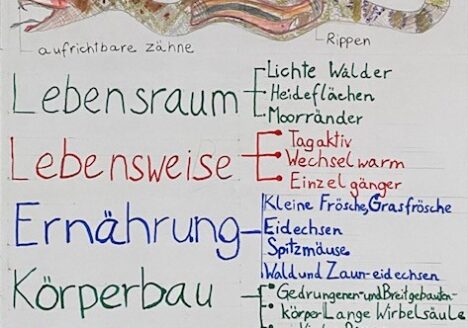 aufrichtbare zähne
Rippen
Lebensraum
Lichte Wälder
Heideflächen
Moorränder
Lebensweise
Tagaktiv
Wechselwarm
Einzelgänger
Ernährung
Kleine Frösche, Grasfrösche
Eidechsen
Spitzmäuse
Wald und Zaun-eidechsen
Körperbau
Gedrungenen-und Breitgebauten-
körper Lange Wirbelsäule